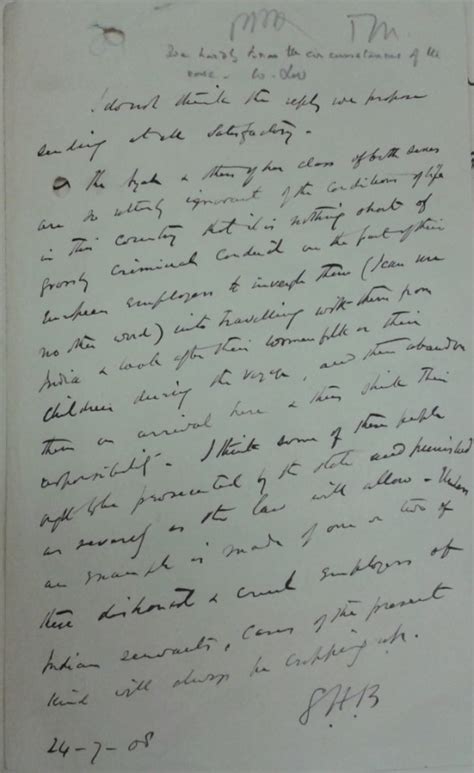 We hardly know the circumstances of the
case -
I do not think the reply we propose
sending at all satisfactory.
The Ayah & others of her class of both sexes
are so utterly ignorant of the conditions of life
in this country that it is nothing short of
grossly criminal conduct on the part of their
European employers to inveigle them (I can use
no other word) into travelling with them from
India & look after their womenfolk or their
children during the voyage, and then abandon
them on arrival here & then shirk their
responsibility. I think some of these people
ought to be prosecuted by the state and punished
as severely as the law will allow - Unless
an example is made of one or two of
these dishonest & cruel employers of
Indian servants, cases of the present
kind will always be cropping up.
SHB
24-7-08